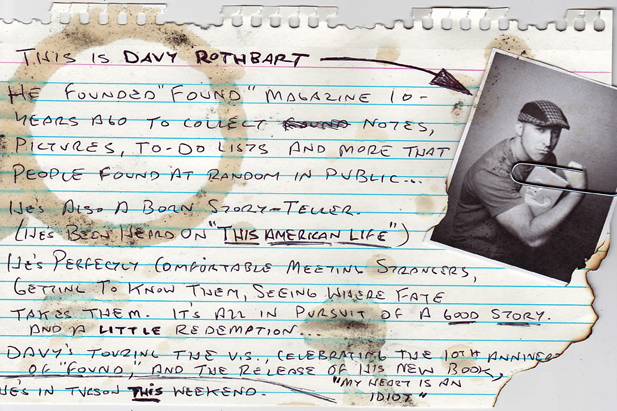 THIS IS DAVY ROTHBART
HE FOUNDED "FOUND" MAGAZINE 10-
YEARS AGO TO COLLECT NOTES,
PICTURES, TO-DO LISTS AND MORE THAT
PEOPLE FOUND AT RANDOM IN PUBLIC...
HE'S ALSO A BORN STORY-TELLER.
(HE'S BEEN HEARD ON "THIS AMERICAN LIFE")
HE'S PERFECTLY COMFORTABLE MEETING STRANGERS,
GETTING TO KNOW THEM, SEEING WHERE FATE
TAKES THEM. IT'S ALL IN PURSUIT OF A GOOD STORY.
AND A LITTLE REDEMPTION...
DAVY'S TOURING THE U.S., CELEBRATING THE 10TH ANNIVER
OF "FOUND," AND THE RELEASE OF HIS NEW BOOK,
"MY HEART IS AN
IDIOT"
HE'S IN TUCSON THIS WEEKEND.